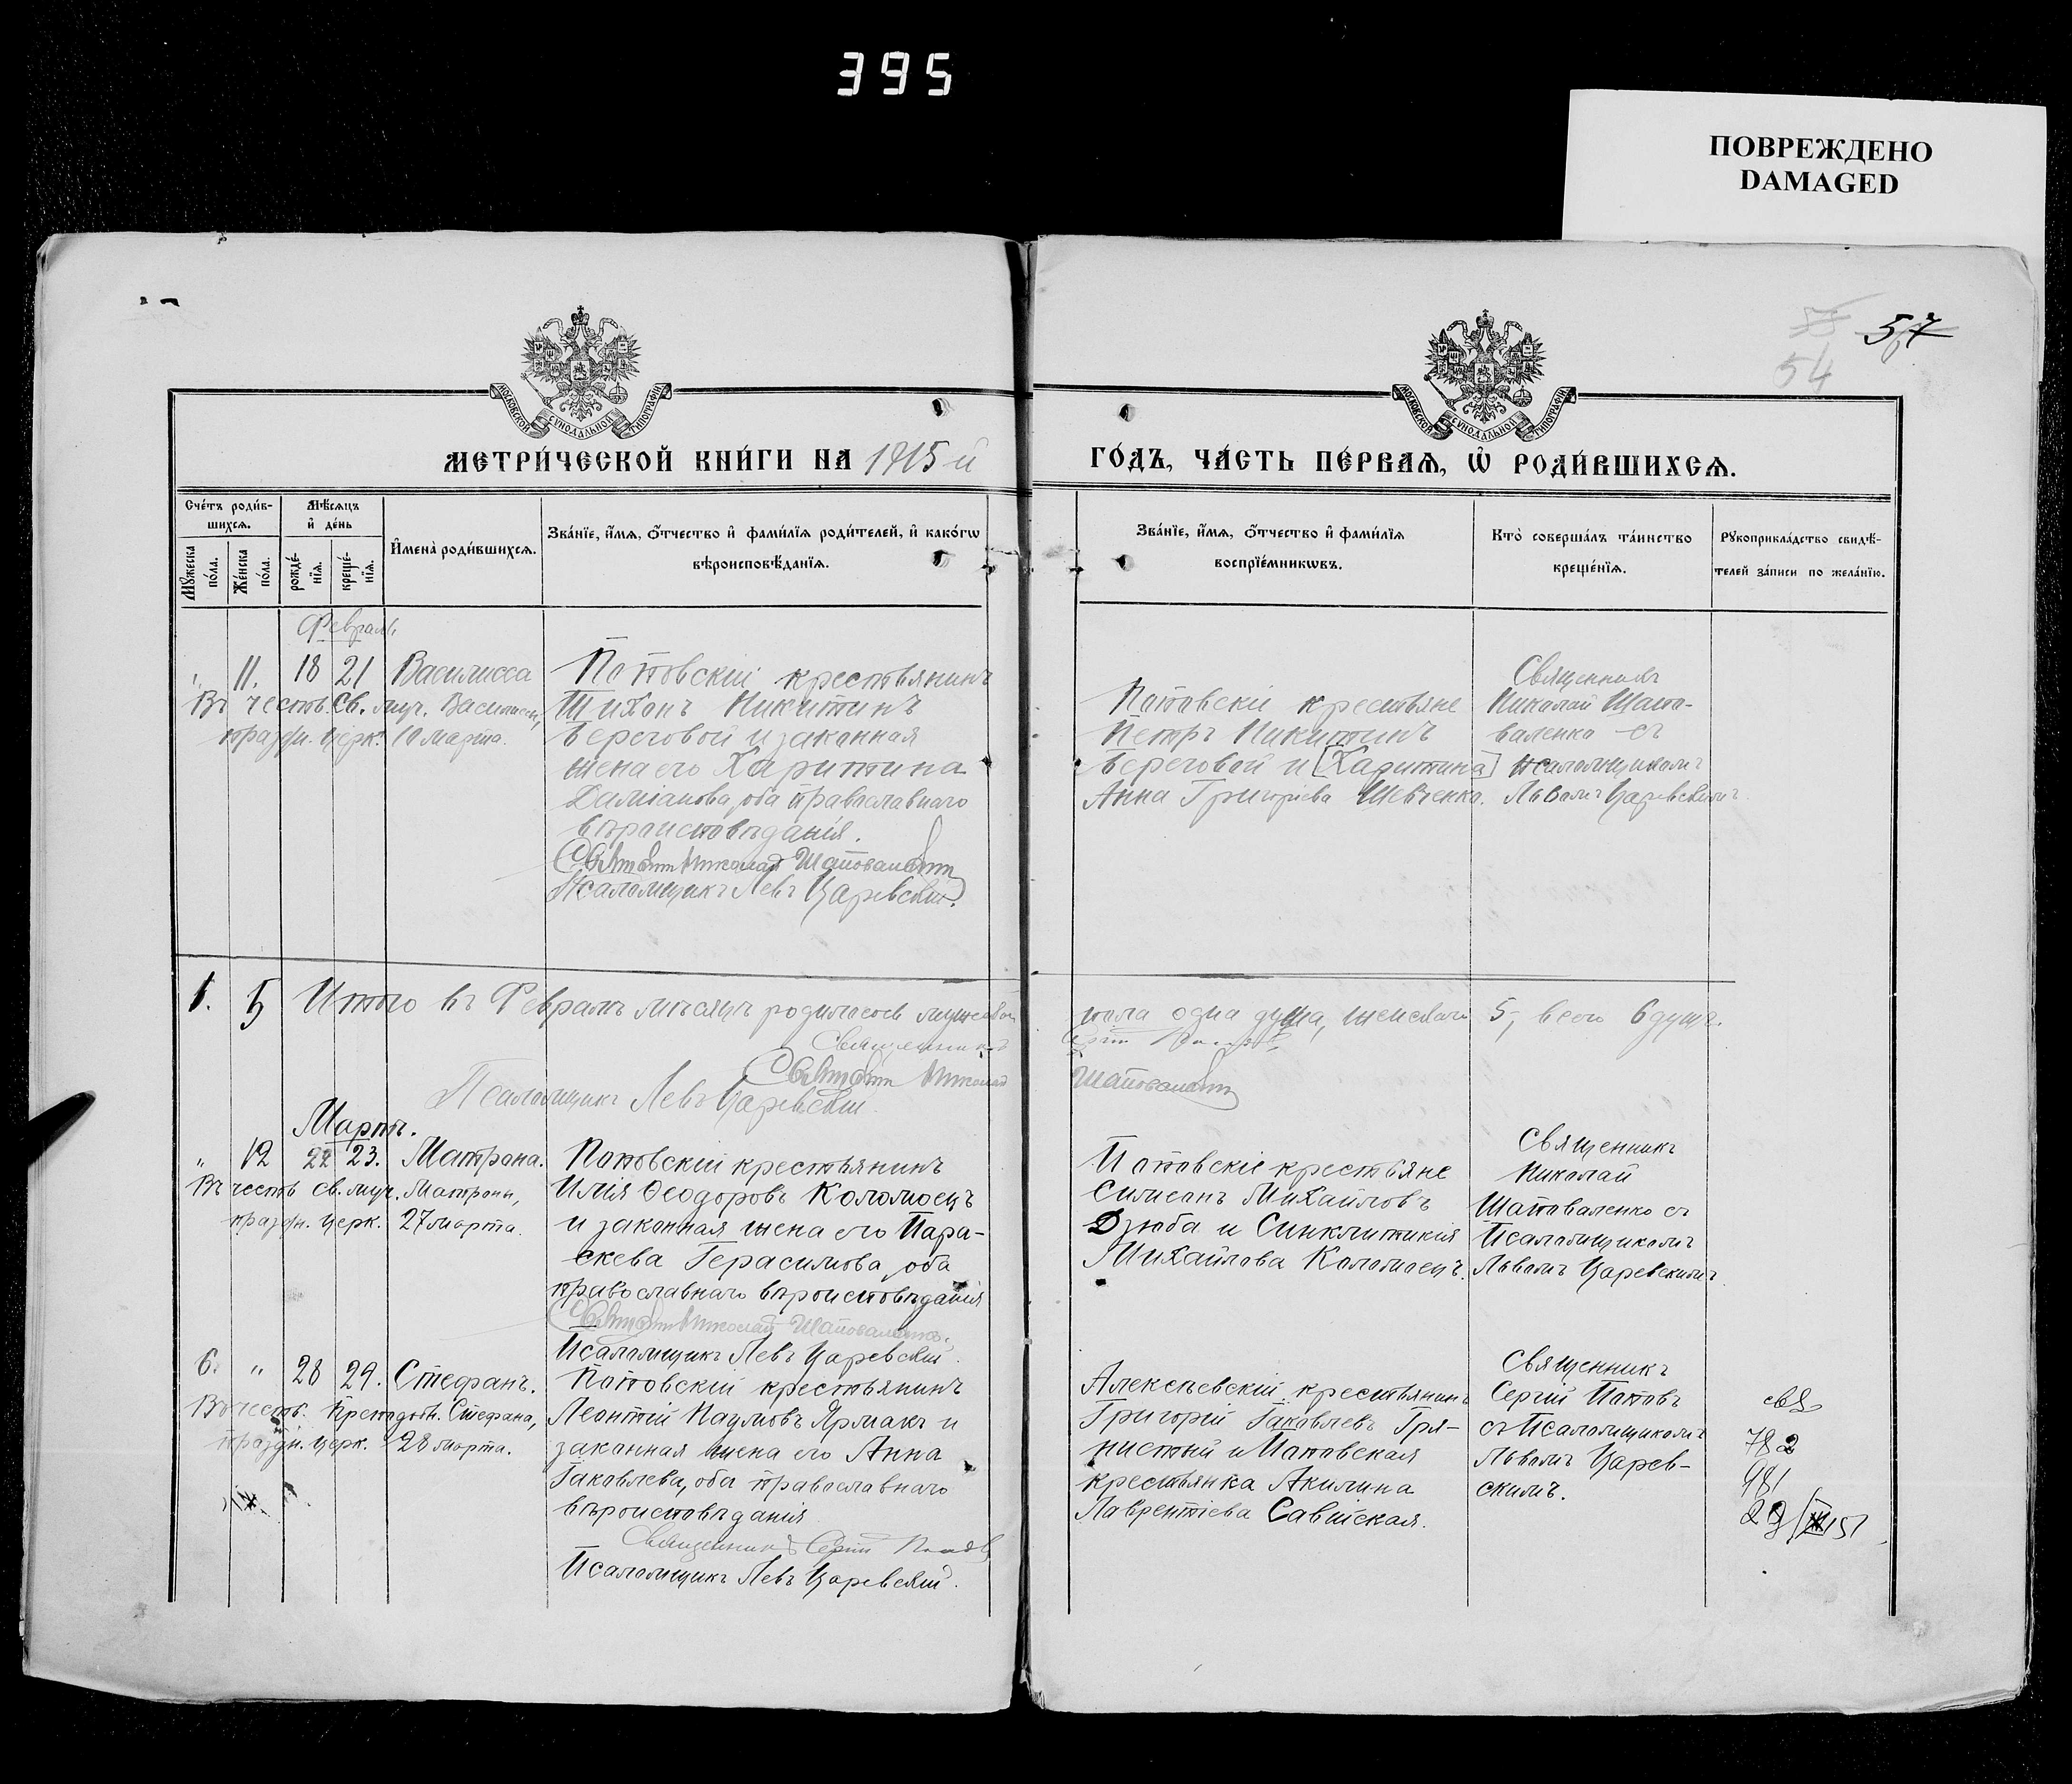 395
ПОВРЕЖДЕНО
DAMAGED
57
54
МОСКОВСКОЙ СѴНОДАЛЬНОЙ ТИПОГРАФІИ
МОСКОВСКОЙ СѴНОДАЛЬНОЙ ТИПОГРАФІИ
МЕТРИ́ЧЕСКОЙ КНИ́ГИ НА 1915-й
ГО́ДЪ, ЧА́СТЬ ПЕ́РВАѦ, Ѡ҆ РОДИ́ВШИХСѦ.
Сче́тъ роди́вшихсѧ.
Мѣ́сѧцъ и҆ де́нь
Мꙋ́жеска по́ла.
Же́нска по́ла.
рожде́нїѧ.
креще́нїѧ.
И҆мена̀ роди́вшихсѧ.
Зва́нїе, и҆́мѧ, ѻ҆́тчество и҆ фами́лїѧ роди́телей, и҆ како́гѡ
вѣроисповѣ́данїѧ.
Зва́нїе, и҆́мѧ, ѻ҆́тчество и҆ фами́лїѧ
воспрїе́мникѡвъ.
Кто̀ соверша́лъ та́инство
креще́нїѧ.
Рꙋкоприкла́дство свидѣ́-
телей за́писи по жела́нїю.
Февраль
" 11. 18 21 Василисса
Въ честь св. муч. Василиссы,
праздн. церк. 10 марта.
Поповскій крестьянинъ
Тихонъ Никитинъ
Береговой и законная
жена его Харитина
Даміанова, оба православнаго
вѣроисповѣданія.
Священникъ Николай Шаповаленко
Псаломщикъ Левъ Царевскій.
Поповскіе крестьяне
Петръ Никитинъ
Береговой и [Харитина]
Анна Григоріева Шевченко.
Священникъ
Николай Шапо-
валенко съ
псаломщикомъ
Львомъ Царевскимъ.
1. 5 Итого въ Февралѣ мѣсяцѣ родилось мужеска пола одна душа, женскаго 5, всего 6 душъ.
Священникъ
Священникъ Николай Шаповаленко
Псаломщикъ Левъ Царевскій.
Мартъ.
" 12 22 23. Матрона.
Въ честь св. муч. Матроны,
праздн. церк. 27 марта.
Поповскій крестьянинъ
Илія Ѳеодоровъ Коломоецъ
и законная жена его Пара-
скева Герасимова, оба
православнаго вѣроисповѣданія
Священникъ Николай Шаповаленко.
Псаломщикъ Левъ Царевскій.
Поповскіе крестьяне
Симеонъ Михайловъ
Дзюба и Синклитикія
Михайлова Коломоецъ.
Священникъ
Николай
Шаповаленко съ
Псаломщикомъ
Львомъ Царевскимъ.
6. " 28 29. Стефанъ.
Въ честь Преподобн. Стефана,
праздн. церк. 28 марта.
Поповскій крестьянинъ
Леонтій Наумовъ Ярмакъ и
законная жена его Анна
Іаковлева, оба православнаго
вѣроисповѣданія
Священникъ Сергій Поповъ
Псаломщикъ Левъ Царевскій.
Алексѣевскій крестьянинъ
Григорій Іаковлевъ Гря-
нистый и Поповская
крестьянка Акилина
Лаврентіева Савійская.
Священникъ
Сергій Поповъ
съ Псаломщикомъ
Львомъ Царев-
скимъ.
782
981